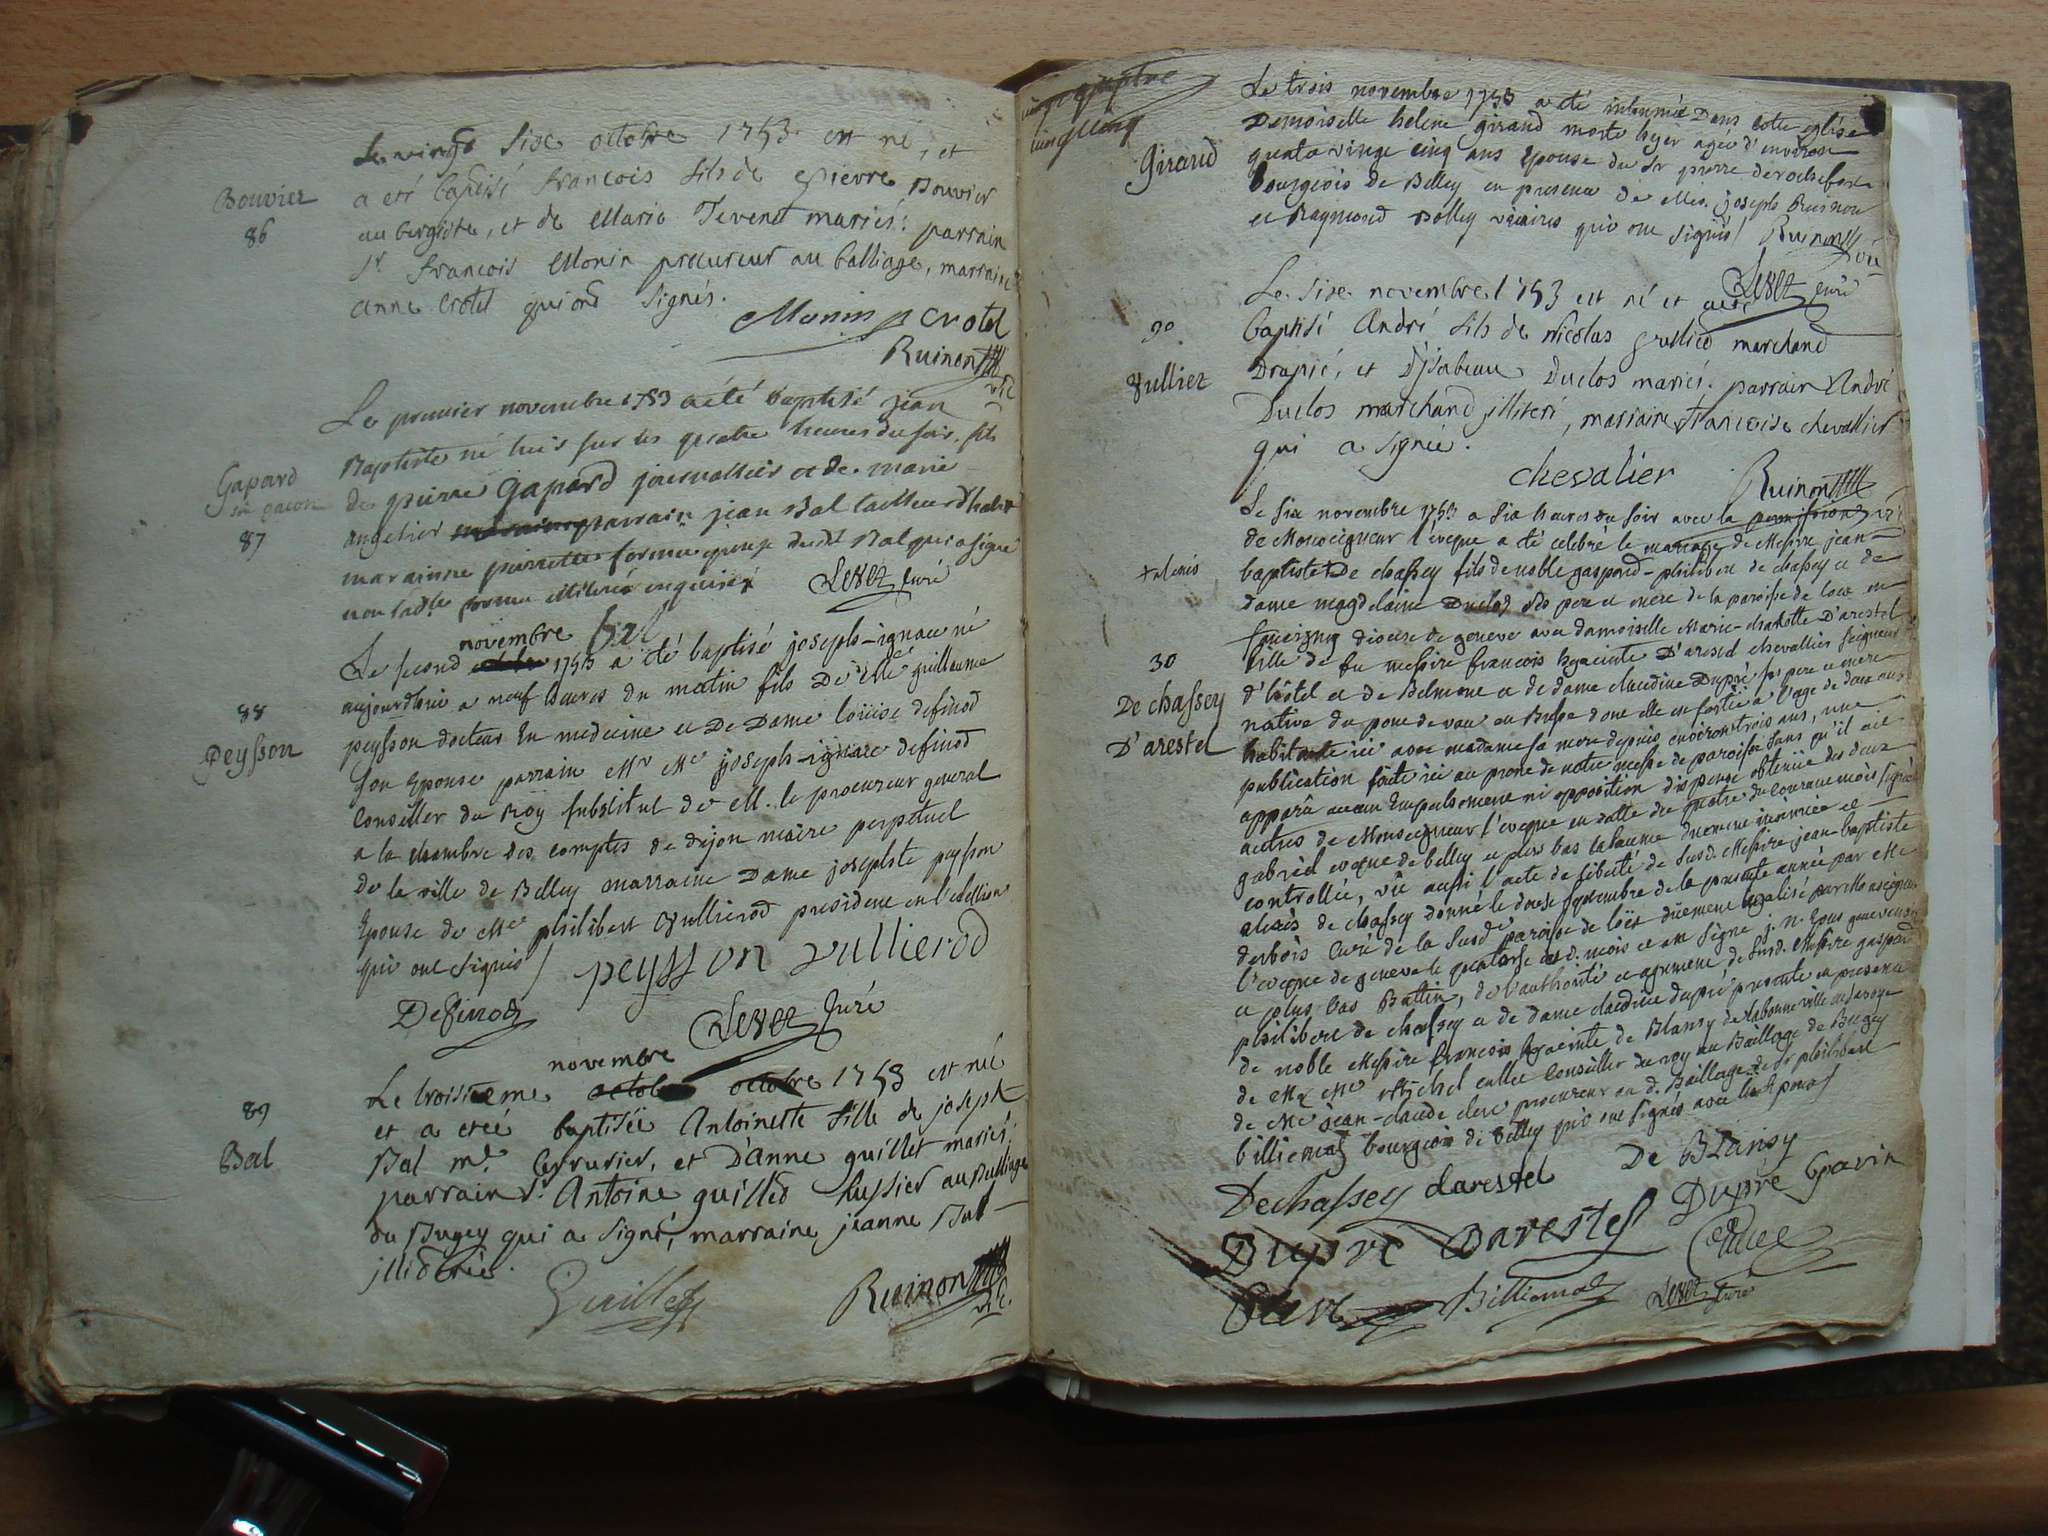 Le vingt six octobre 1753 est né, et
Bouvier
86
a eté baptisé francois fils de pierre Bouvier
aubergiste, et de Marie Tevenet mariés: parrain
sr francois Monin procureur au balliage, marraine
anne crotel qui ont signés.
Monin crotel
Ruinon vic
Gapard
87
Le premier novembre 1753 a été baptisé jean
Baptiste né hier sur les quatre heures du soir, fils
de pierre Gapard journallier et de marie
angelier parrain jean Bal tailleur d'habit
marainne pierrette forma epouse dudt Bal qui a signé
non ladte forma illiterée enquise
Levet curé
novembre
88
peysson
Le second 1753 a été baptisé joseph-ignace né
aujourdhui a neuf heures du matin fils De Me guillaume
peysson docteur En medecine et De Dame louise definod
son Epouse parrain Mr Me joseph-ignace definod
Conseiller du Roy substitut de M. le procureur general
a la chambre des comptes de dijon maire perpetuel
de la ville de Belley marraine Dame josephte peysson
Epouse de Me philibert Vullierod president en l'election
qui ont signés / peysson vullierod
Definod
Levet curé
novembre
89
Bal
Le troisieme octobre octobre 1753 est née
et a eteé baptisée Antoinette fille de joseph
Bal md. serrurier, et D'anne guillet mariés;
parrain sr. Antoine guilled huissier au Balliage
du Bugey qui a signé, marraine jeanne Bal
illiterée.
Guillet
Ruinon vic.
vingt quatre
Giraud
Le trois novembre 1753 a été inhumée Dans cette eglise
Demoiselle helene giraud morte hyer agée d'environ
quatavinge cinq ans Epouse du Sr pierre derochefort
bourgeois de Belley en presence de Mes. joseph Ruinon
et Raymond Bolley vicaires qui ont signés / Ruinon vic
Levet curé
90
Vulliet
Le six novembre 1753 est né et a été
baptisé André fils de nicolas gullied marchand
Drapié, et D'jsabeau Duclos mariés. parrain André
Duclos marchand jlliteré, marraine francoise chevallier
qui a signée.
chevalier
Ruinon vic
+ alexis
30
De chassey
D'arestel
Le six novembre 1753 a six heures du soir avec la permission
de Monseigneur l'eveque a été celebré le mariage de Messire jean-
baptiste + De chassey fils de noble gaspard-philibert de chassey et de
dame magdelaine Duclos ses pere et mere de la paroisse de
diocese de geneve avec damoiselle Marie-charlotte D'arestel
fille de feu messire francois hyacinte D'arestel chevallier seigneur
d'hôstel et de Belmont et de dame claudine Dupré ses pere et mere
native du pont de vau en Bresse dont elle est sortie a l'age de deux ans
habitante ici avec madame sa mere depuis environ trois ans, une
publication faite ici au prone de notre messe de paroisse sans qu'il ait
apparû aucun Empechement ni opposition dispense obtenüe des deux
autres de Monseigneur l'eveque en datte du quatre du courant mois signé
gabriel eveque de belley et plus bas labaume duement insinuée et
controllée, vû aussi l'acte de liberté de susd. Messire jean-baptiste
alexis de chassey donné le douse septembre de la presente année par Me
desbois curé de la susd. paroisse de duement legalisé par Monseigneur
l'eveque de geneve le quatorse dud. mois et an signé j. n. Epus genevensis
et plus bas Batin, de l'authorité et agrement de susd. Messire gaspard
philibert de chassey et de dame claudine dupré presente en presence
de noble Messire francois hyacinte de Blansy de la bonneville en savoye
de Mr Me Michel cullet conseiller du roy au Baillage de Bugey
de Me jean-claude clerc procureur au d. Baillage de Sr philibert
billiemaz bourgeois de belley qui ont signés avec les Epoux /
Dechassey darestel De Blansy
Dupré Darestel Dupré Gravin
Cullet
Clerc Billiemaz Levet curé